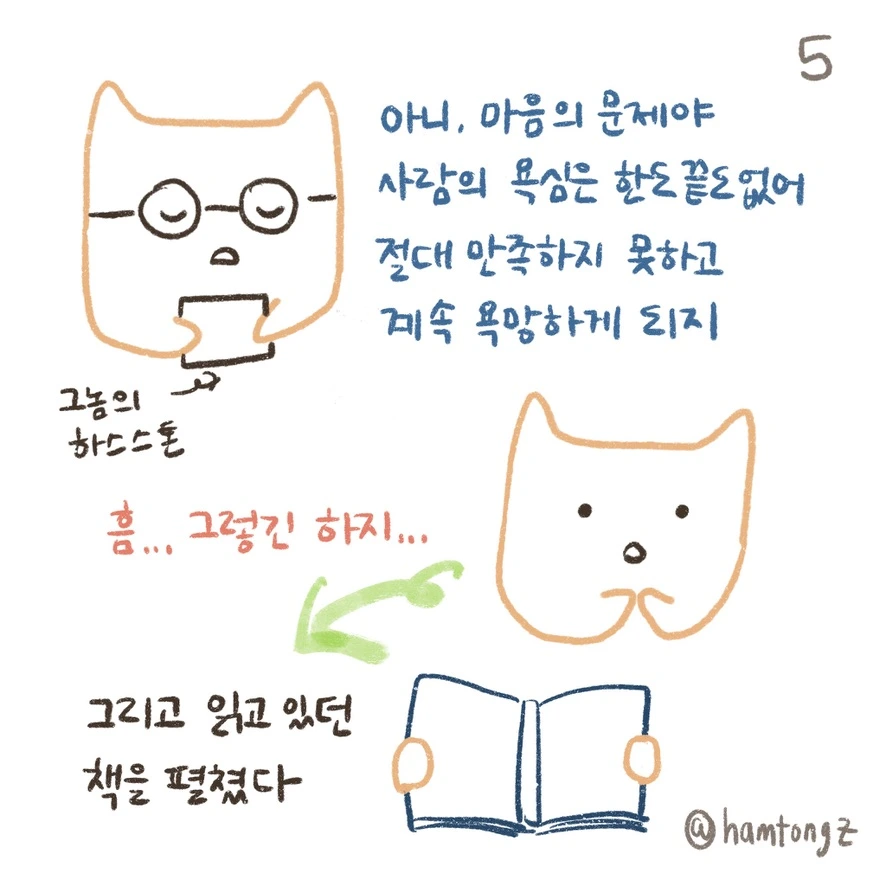 5
아니, 마음의 문제야
사람의 욕심은 한도끝도없어
절대 만족하지 못하고
계속 욕망하게 되지
그놈의
하스스톤
흠... 그렇긴 하지...
그리고 읽고 있던
책을 펼쳤다
@hamtongz